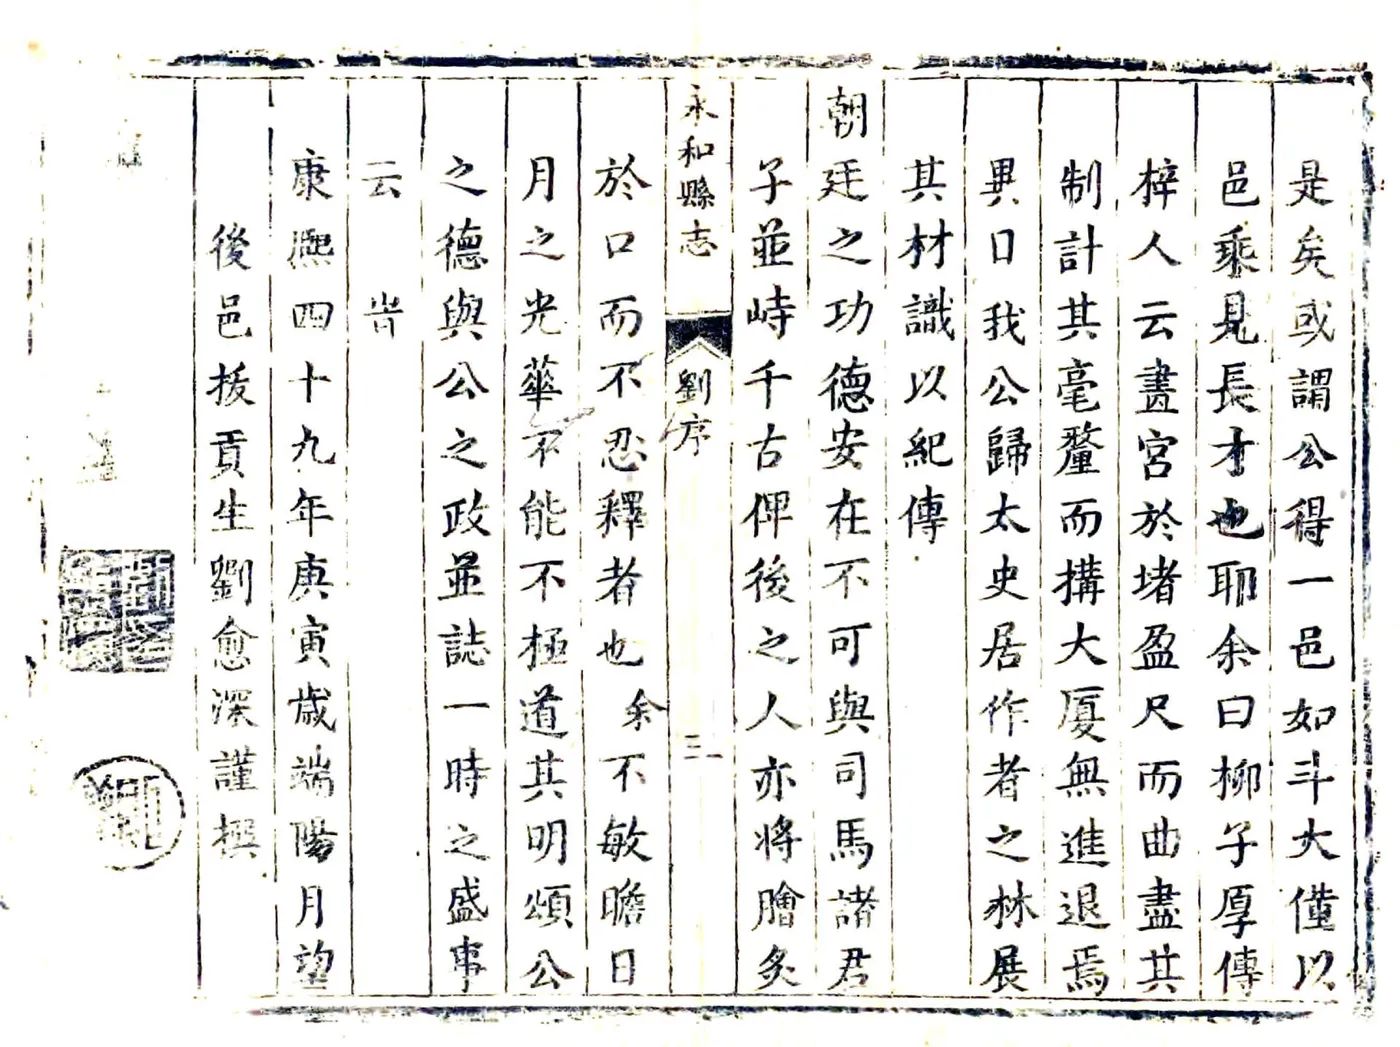 是矣或謂公得一邑如斗大僅以
邑乘見長才也耶余曰柳子厚傳
梓人云畫宮於堵盈尺而曲盡其
制計其毫釐而搆大厦無進退焉
異日我公歸太史居作者之林展
其材識以紀傳
朝廷之功德安在不可與司馬諸君
子並峙千古俾後之人亦將膾炙
永和縣志
劉序
三
於口而不忍釋者也余不敏瞻日
月之光華不能不極道其明頌公
之德與公之政並誌一時之盛事
云旹
康熙四十九年庚寅歲端陽月望
後邑拔貢生劉愈深謹撰